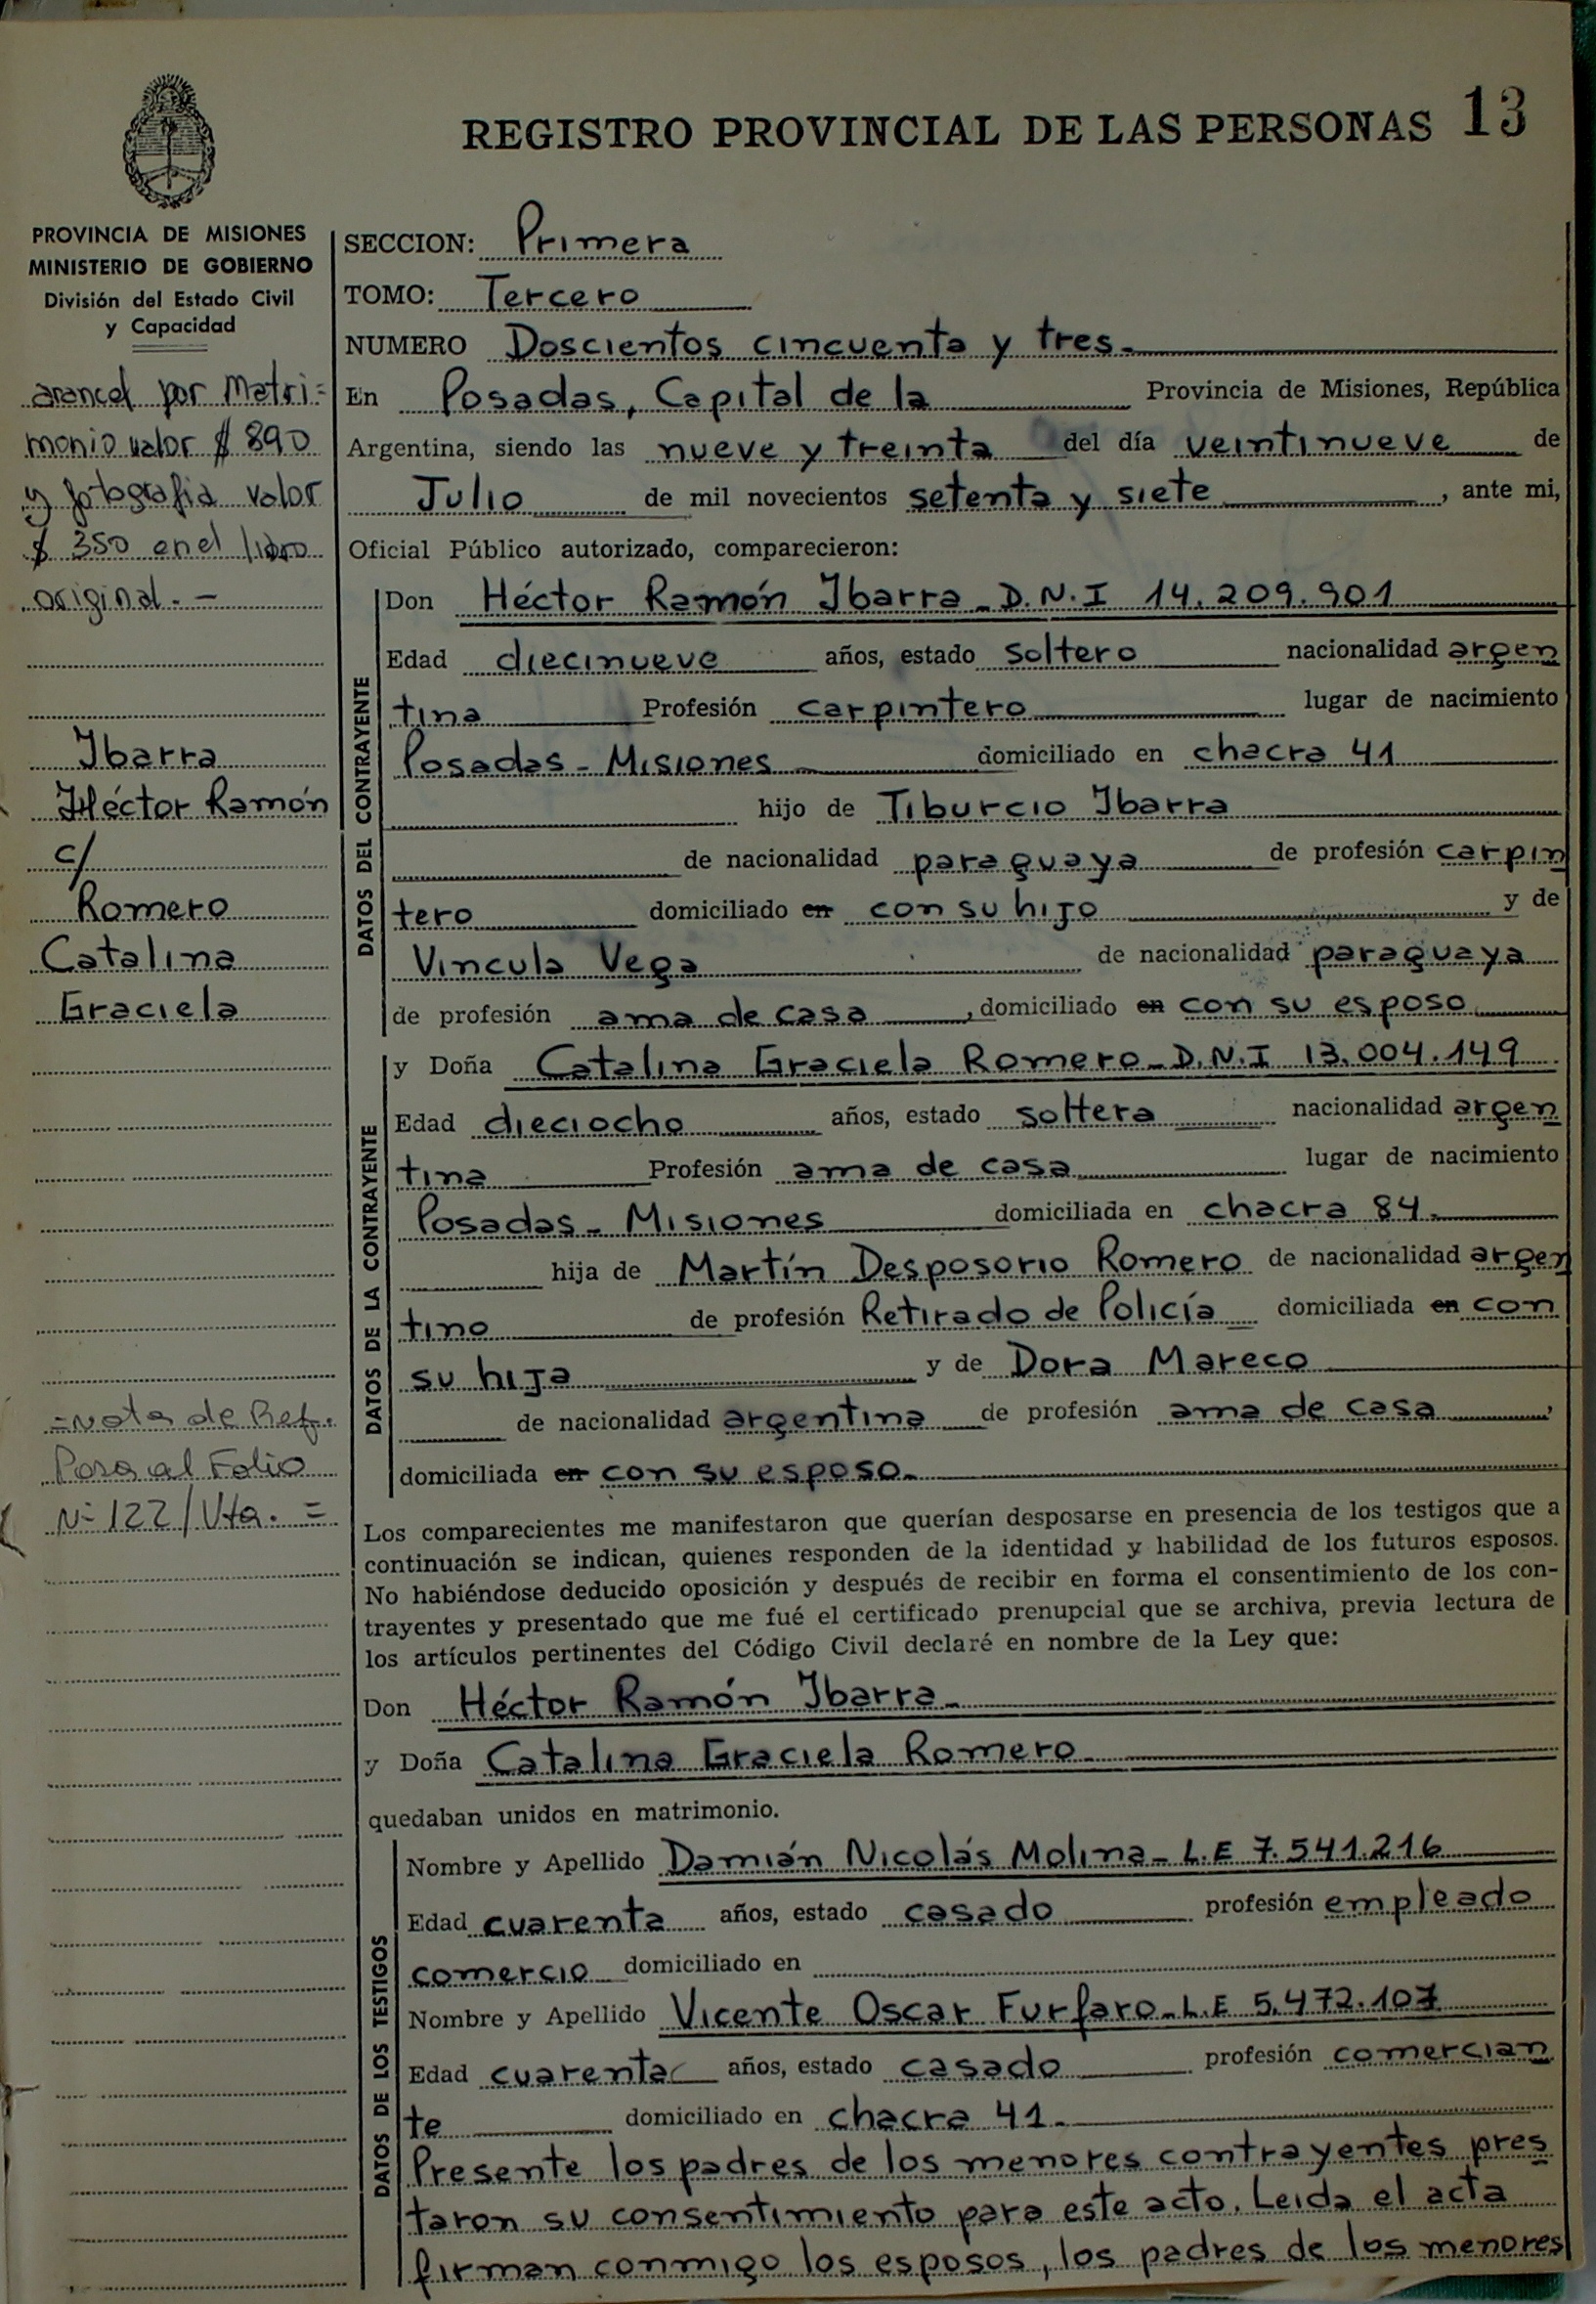 REGISTRO PROVINCIAL DE LAS PERSONAS 13
PROVINCIA DE MISIONES
MINISTERIO DE GOBIERNO
División del Estado Civil
y Capacidad
arancel por Matri=
monio valor $ 890
y fotografia valor
$ 350 en el libro
original. -
Ibarra
Héctor Ramón
c/
Romero
Catalina
Graciela
=Nota de Ref.
Pasa al Folio
Nº 122/Vta. =
SECCION: Primera
TOMO: Tercero
NUMERO Doscientos cincuenta y tres.
En Posadas, Capital de la Provincia de Misiones, República
Argentina, siendo las nueve y treinta del día veintinueve de
Julio de mil novecientos setenta y siete, ante mi,
Oficial Público autorizado, comparecieron:
DATOS DEL CONTRAYENTE
Don Héctor Ramón Ibarra - D.N.I 14.209.901
Edad diecinueve años, estado soltero nacionalidad argen
tina Profesión carpintero lugar de nacimiento
Posadas - Misiones domiciliado en chacra 41
hijo de Tiburcio Ibarra
de nacionalidad paraguaya de profesión carpin
tero domiciliado en con su hijo y de
Vincula Vega de nacionalidad paraguaya
de profesión ama de casa, domiciliado en con su esposo
DATOS DE LA CONTRAYENTE
y Doña Catalina Graciela Romero - D.N.I 13.004.149
Edad dieciocho años, estado soltera nacionalidad argen
tina Profesión ama de casa lugar de nacimiento
Posadas - Misiones domiciliada en chacra 84.
hija de Martín Desposorio Romero de nacionalidad argen
tino de profesión Retirado de Policía domiciliada en con
su hija y de Dora Mareco
de nacionalidad argentina de profesión ama de casa,
domiciliada en con su esposo.
Los comparecientes me manifestaron que querían desposarse en presencia de los testigos que a
continuación se indican, quienes responden de la identidad y habilidad de los futuros esposos.
No habiéndose deducido oposición y después de recibir en forma el consentimiento de los con-
trayentes y presentado que me fué el certificado prenupcial que se archiva, previa lectura de
los artículos pertinentes del Código Civil declaré en nombre de la Ley que:
Don Héctor Ramón Ibarra.
y Doña Catalina Graciela Romero
quedaban unidos en matrimonio.
DATOS DE LOS TESTIGOS
Nombre y Apellido Damián Nicolás Molina - L.E 7.541.216
Edad cuarenta años, estado casado profesión empleado
comercio domiciliado en
Nombre y Apellido Vicente Oscar Furfaro - L.E 5.472.107
Edad cuarenta años, estado casado profesión comercian
te domiciliado en chacra 41.
Presente los padres de los menores contrayentes pres
taron su consentimiento para este acto. Leida el acta
firman conmigo los esposos, los padres de los menores